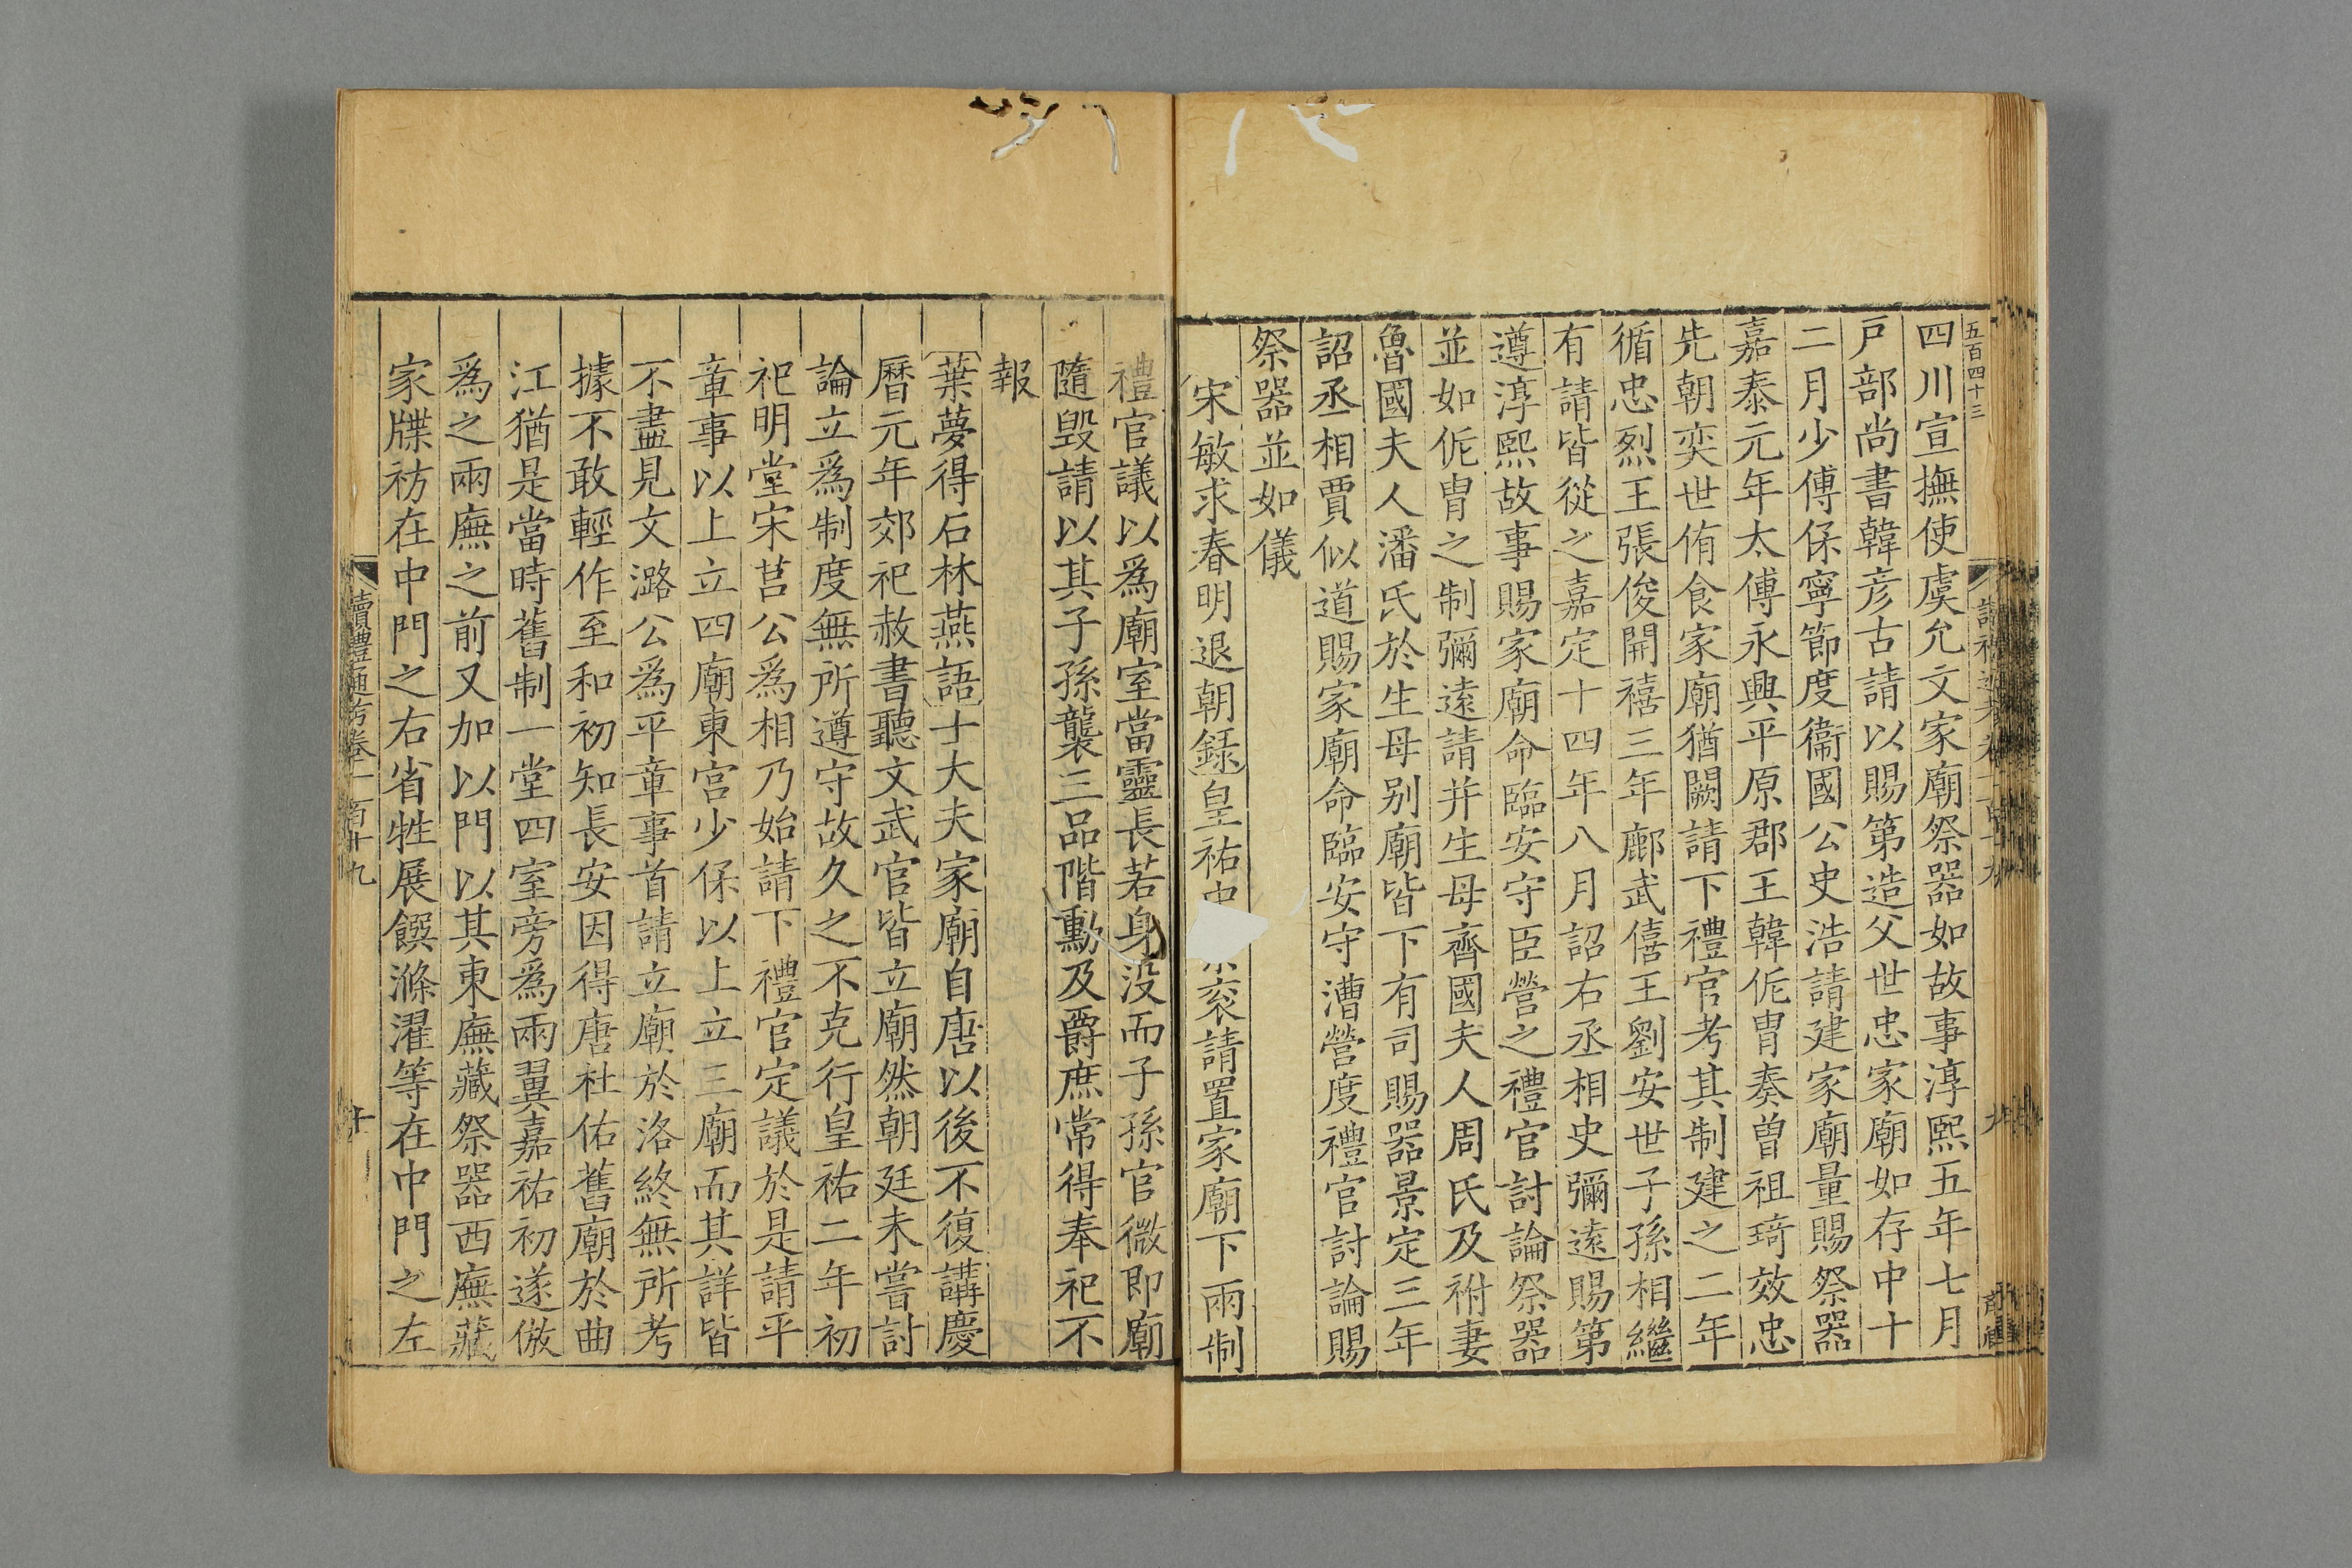 五百四十三
四川宣撫使虞允文家廟祭器如故事淳熙五年七月
戸部尚書韓彦古請以賜第造父世忠家廟如存中十
二月少傅保寧節度衞國公史浩請建家廟量賜祭器
嘉泰元年太傅永興平原郡王韓侂胄奏曾祖琦效忠
先朝奕世侑食家廟猶闕請下禮官考其制建之二年
循忠烈王張俊開禧三年鄜武僖王劉安世子孫相繼
有請皆從之嘉定十四年八月詔右丞相史彌遠賜第
遵淳熙故事賜家廟命臨安守臣營之禮官討論祭器
並如侂胄之制彌遠請并生母齊國夫人周氏及祔妻
魯國夫人潘氏於生母别廟皆下有司賜器景定三年
詔丞相賈似道賜家廟命臨安守漕營度禮官討論賜
祭器並如儀
宋敏求春明退朝錄皇祐中衮請置家廟下兩制
禮官議以爲廟室當靈長若身没而子孫官微即廟
隨毁請以其子孫襲三品階勳及爵庶常得奉祀不
報
葉夢得石林燕語士大夫家廟自唐以後不復講慶
曆元年郊祀赦書聽文武官皆立廟然朝廷未嘗討
論立爲制度無所遵守故久之不克行皇祐二年初
祀明堂宋莒公爲相乃始請下禮官定議於是請平
章事以上立四廟東宫少保以上立三廟而其詳皆
不盡見文潞公爲平章事首請立廟於洛終無所考
據不敢輕作至和初知長安因得唐杜佑舊廟於曲
江猶是當時舊制一堂四室旁爲兩翼嘉祐初遂倣
爲之兩廡之前又加以門以其東廡藏祭器西廡藏
家牒祊在中門之右省牲展饌滌濯等在中門之左
讀禮通考卷一百十九
十